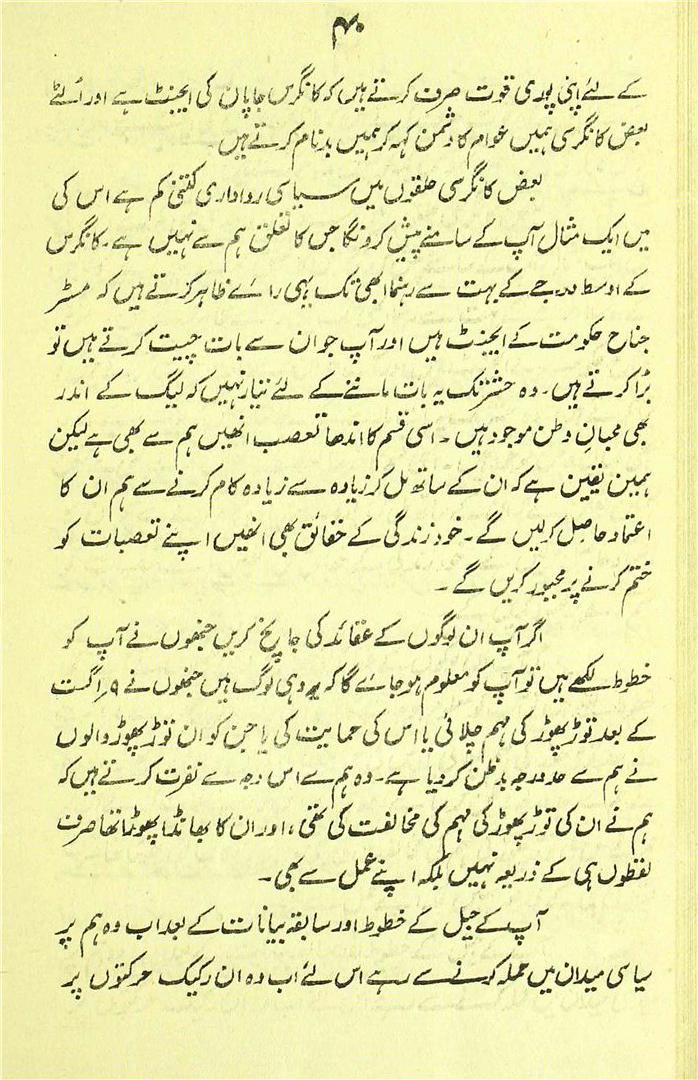 ۴۰
کے لئے اپنی پوری قوت صرف کرتے ہیں کہ کانگرس جاپان کی ایجنٹ ہے اور اُلٹے
بعض کانگرسی ہمیں عوام کا دشمن کہہ کر ہمیں بدنام کرتے ہیں۔
بعض کانگرسی حلقوں میں سیاسی رواداری کتنی کم ہے اس کی
میں ایک مثال آپ کے سامنے پیش کرونگا جس کا تعلق ہم سے نہیں ہے۔ کانگرس
کے اوسط درجے کے بہت سے رہنما ابھی تک یہی رائے ظاہر کرتے ہیں کہ مسٹر
جناح حکومت کے ایجنٹ ہیں اور آپ جو ان سے بات چیت کرتے ہیں تو
بُرا کرتے ہیں۔ وہ حشر تک یہ بات ماننے کے لئے تیار نہیں کہ لیگ کے اندر
بھی محبانِ وطن موجود ہیں۔ اسی قسم کا اندھا تعصب انھیں ہم سے بھی ہے لیکن
ہمیں یقین ہے کہ ان کے ساتھ مل کر زیادہ سے زیادہ کام کرنے سے ہم ان کا
اعتماد حاصل کرلیں گے۔ خود زندگی کے حقائق بھی انھیں اپنے تعصبات کو
ختم کرنے پر مجبور کریں گے۔
اگر آپ ان لوگوں کے عقائد کی جانچ کریں جنھوں نے آپ کو
خطوط لکھے ہیں تو آپ کو معلوم ہو جائے گا کہ یہ وہی لوگ ہیں جنھوں نے ۹؍ اگست
کے بعد توڑ پھوڑ کی مہم چلائی یا اس کی حمایت کی یا جن کو ان توڑ پھوڑ والوں
نے ہم سے حد درجہ بدظن کر دیا ہے۔ وہ ہم سے اس وجہ سے نفرت کرتے ہیں کہ
ہم نے ان کی توڑ پھوڑ کی مہم کی مخالفت کی تھی، اور ان کا بھانڈا پھوڑا تھا صرف
لفظوں ہی کے ذریعہ نہیں بلکہ اپنے عمل سے بھی۔
آپ کے جیل کے خطوط اور سابقہ بیانات کے بعد اب وہ ہم پر
سیاسی میدان میں حملہ کرنے سے رہے اس لئے اب وہ ان رکیک حرکتوں پر